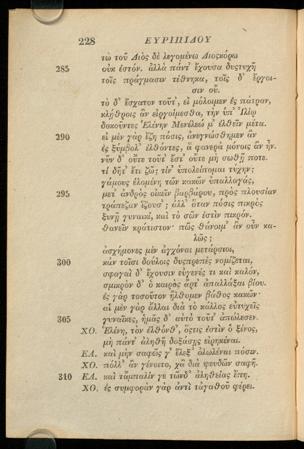 228 ΕΥΡΙΠΙΔΟΥ
τὼ τοῦ Διὸς δὲ λεγομένω Διοσκόρω
285 οὐκ ἐστόν. ἀλλὰ πάντ' ἔχουσα δυςτυχῆ
τοῖς πράγμασιν τέθνηκα, τοῖς δ' ἔργοι-
σιν οὔ.
τὸ δ' ἔσχατον τοῦτ', εἰ μόλοιμεν ἐς πάτραν,
κλῄθροις ἂν εἰργοίμεσθα, τὴν ὑπ' Ἰλίῳ
δοκοῦντες Ἑλένην Μενέλεώ μ' ἐλθεῖν μέτα.
290 εἰ μὲν γὰρ ἔζη πόσις, ἀνεγνώσθημεν ἂν
ἐς ξύμβολ' ἐλθόντες, ἃ φανερὰ μόνοις ἂν ἦν.
νῦν δ' οὔτε τοῦτ' ἔστ' οὔτε μὴ σωθῇ ποτε.
τί δῆτ' ἔτι ζῶ; τίν' ὑπολείπομαι τύχην;
γάμους ἑλομένη τῶν κακῶν ὑπαλλαγάς,
295 μετ' ἀνδρὸς οἰκεῖν βαρβάρου, πρὸς πλουσίαν
τράπεζαν ἵζουσ'; ἀλλ' ὅταν πόσις πικρὸς
ξυνῇ γυναικί, καὶ τὸ σῶν ἐστιν πικρόν.
θανεῖν κράτιστον· πῶς θάνοιμ' ἂν οὖν κα-
λῶς;
ἀσχήμονες μὲν ἀγχόναι μετάρσιοι,
300 κἀν τοῖσι δούλοις δυςπρεπὲς νομίζεται,
σφαγαὶ δ' ἔχουσιν εὐγενές τι καὶ καλόν,
σμικρὸν δ' ὁ καιρὸς ἄρτ' ἀπαλλάξαι βίου.
ἐς γὰρ τοσοῦτον ἤλθομεν βάθος κακῶν·
αἱ μὲν γὰρ ἄλλαι διὰ τὸ κάλλος εὐτυχεῖς
305 γυναῖκες, ἡμᾶς δ' αὐτὸ τοῦτ' ἀπώλεσεν.
ΧΟ. Ἑλένη, τὸν ἐλθόνθ', ὅςτις ἐστὶν ὁ ξένος,
μὴ πάντ' ἀληθῆ δοξάσῃς εἰρηκέναι.
ΕΛ. καὶ μὴν σαφῶς γ' ἔλεξ' ὀλωλέναι πόσιν.
ΧΟ. πόλλ' ἂν γένοιτο, χἂ διὰ ψευδῶν σαφῆ.
310 ΕΛ. καὶ τἄμπαλίν γε τῶνδ' ἀληθείας ἔπη.
ΧΟ. ἐς συμφορὰν γὰρ ἀντὶ τἀγαθοῦ φέρει.